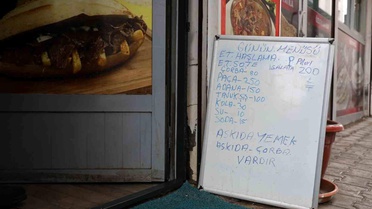 GÜNÜN MENÜSÜ
ET HAŞLAMA
ET SOTE 200
ÇORBA-
PAÇA-250
ADANA-150
TAVUKŞA-100
KOLA-30
SU-10
SODA-
ASKIDA YEMEK
ASKIDA-ÇORBA
VARDIR